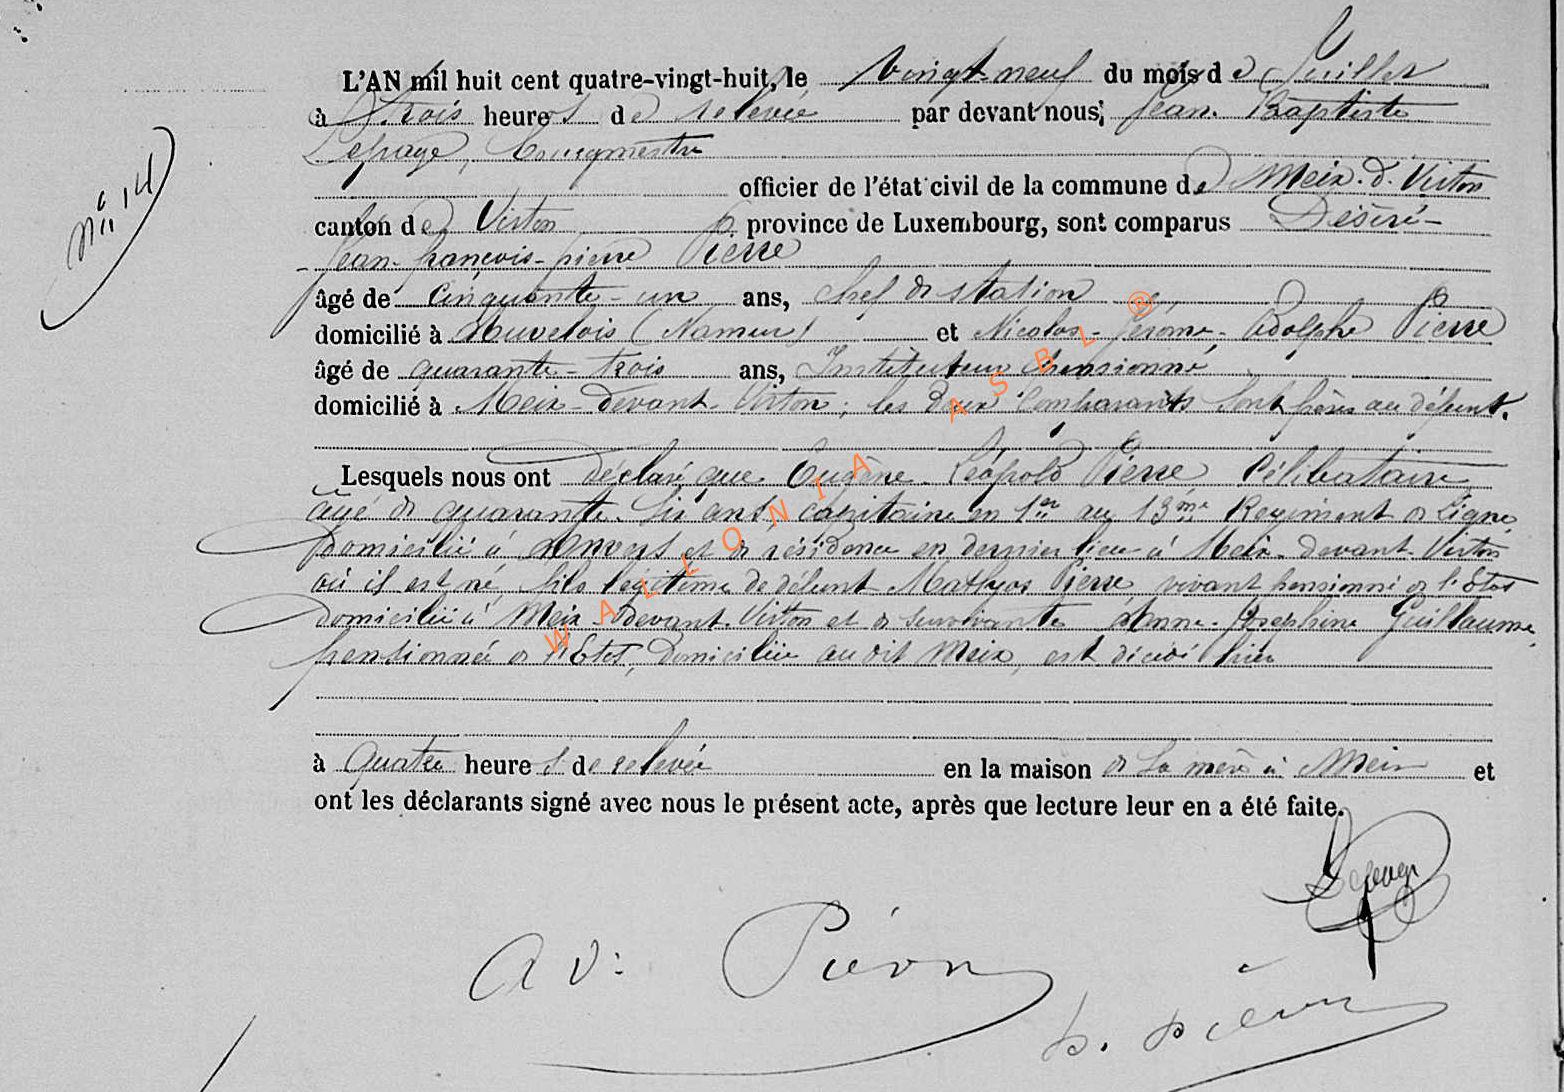 N° 14
L'AN mil huit cent quatre-vingt-huit, le vingt-neuf du mois de Juillet
à trois heures de relevée par devant nous, Jean-Baptiste
Lepage, bourgmestre
officier de l'état civil de la commune de Meix-d-Virton
canton de Virton province de Luxembourg, sont comparus Désiré-
Jean-françois-pierre Pierre
âgé de cinquante-un ans, chef de station
domicilié à (Namur) et Nicolas-Jérôme-Adolphe Pierre
âgé de quarante-trois ans, Instituteur pensionné
domicilié à Meix-devant-Virton; les deux comparants sont frères au défunt.
Lesquels nous ont déclaré que Eugène-Léopold Pierre célibataire
âgé de quarante-six ans, capitaine en 1er au 13ème Regiment de Ligne
domicilié à Anvers et de résidence en dernier lieu à Meix-devant-Virton
où il est né, fils légitime de défunt Pierre, vivant pensionné de l'Etat
domicilié à Meix-devant-Virton et de survivante Anne-Joséphine Guillaume,
pensionnée de l'Etat, domiciliée au dit Meix, est décédé hier
à quatre heures de relevée en la maison de sa mère à Meix et
ont les déclarants signé avec nous le présent acte, après que lecture leur en a été faite.
Lepage
Ad: Pierre
D. Pierre
WALLONIA ASBL ®